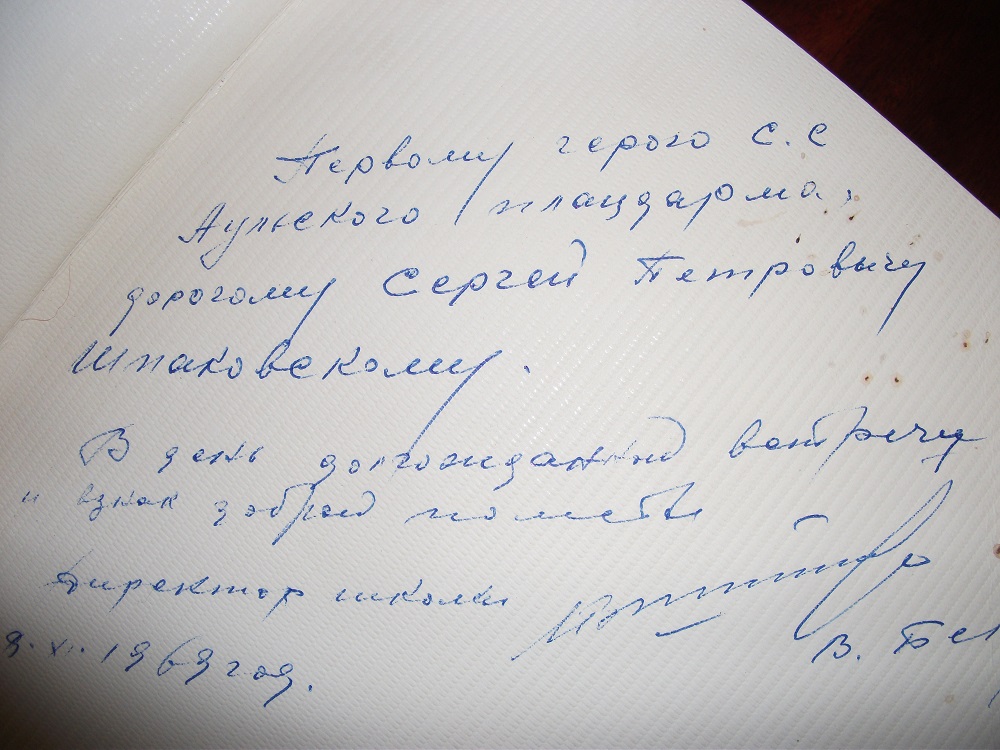 Первому герою С.С
Аульского плацдарма,
дорогому Сергей Петровичу
Шпаковскому.
В день долгожданной встречи
и взнак доброй памяти
Директор школы
В. Бел
9.XI.1969 год.